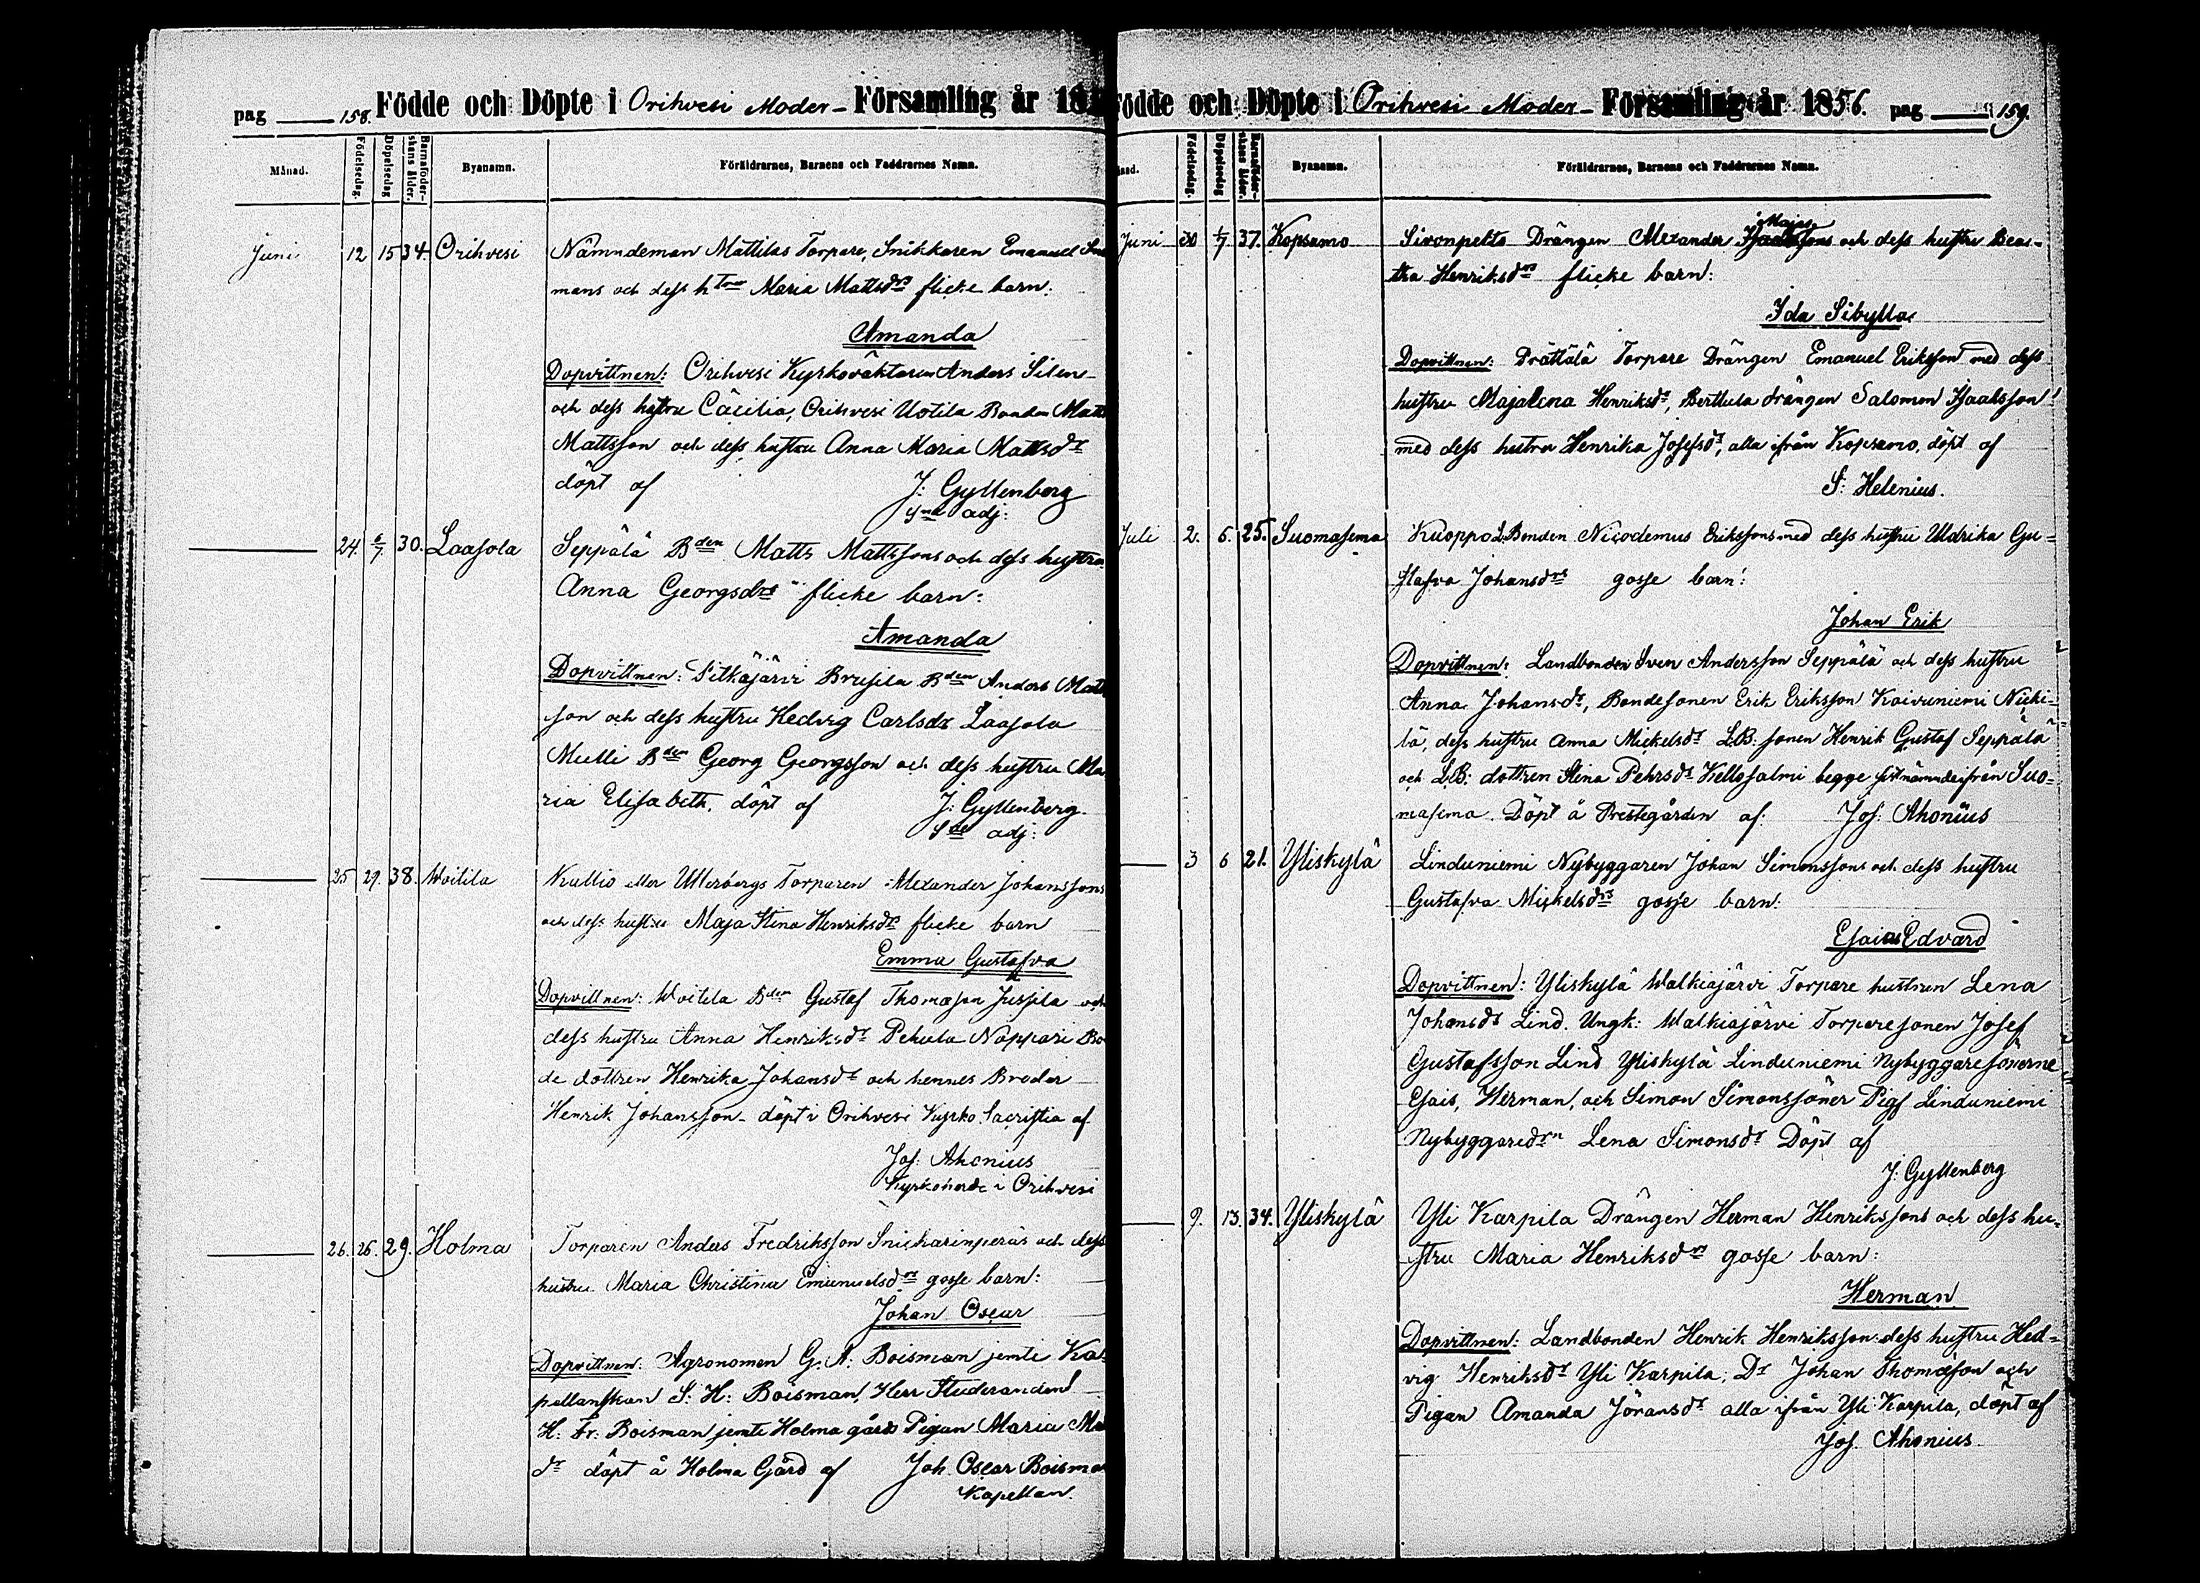 pag 158. Födde och Döpte i Orihvesi Moder- Församling år 18
Månad. Födelsedag. Döpelsedag Barnaföder-skans ålder. Byanamn. Föräldrarnes, Barnens och Faddrarnes Namn.
Juni 12 15 34. Orihvesi Nämndeman Mattilas Torpare, Snikkaren Emanuel
mans och dess htrus Maria Mattsdrs flicke barn:
Amanda
Dopvittnen: Orihvesi Kyrkoväktaren Anders Silen
och dess hustru Cäcilia, Orihvesi Uotila Bonden Matts
Mattsson och dess hustru Anna Maria Mattsdr
döpt af J: Gyllenberg
adj:
24. 6/7 30. Laasola Seppälä Bden Matts Mattssons och dess hustru
Anna Georgsdrs flicke barn:
Amanda
Dopvittnen: Pitkäjärvi Brusila Bden Anders Matts
son och dess hustru Hedvig Carlsdr Laasola
Mulli Bden Georg Georgsson och dess hustru Ma
ria Elisabeth, döpt af J: Gyllenberg
adj:
25 29. 38. Woitila Kallio eller Ullerbergs Torparen Alexander Johanssons
och dess hustru Maja Stina Henriksdrs flicke barn
Emma Gustafva
Dopvittnen: Woitila Bden Gustaf Thomasson Jussila och
dess hustru Anna Henriksdr Pehula Noppari Bo
de dottren Henrika Johansdr och hennes Broder
Henrik Johansson döpt i Orihvesi Kyrko Sacristia af
Jos. Ahonius
Kyrkoherde i Orihvesi
26. 26. 29. Holma Torparen Anders Fredriksson Snickarinperäs och dess
hustru Maria Christina Emanuelsdrs gosse barn:
Johan Oscar
Dopvittnen: Agronomen G. A: Boisman jemte Ka-
pellanskan S. H: Boisman, Herr Studeranden
H. Fr. Boisman jemte Holma gårds Pigan Maria
dr döpt å Holma Gård af Joh. Oscar Boisman
Kapellan.
Födde och Döpte i Orihvesi Moder- Församling år 1856. pag 159.
Födelsedag. Döpelsedag Barnaföder-skans ålder. Byanamn. Föräldrarnes, Barnens och Faddrarnes Namn.
Juni 30 6/7 37. Kopsamo Sivonpelto Drängen Alexander och dess hustru Bea-
tha Henriksdrs flicke barn:
Ida Sibylla
Dopvittnen: Prättälä Torpare Drängen Emanuel Eriksson med dess
hustru Majalena Henriksdr, Berttula drängen Salomon Isaaksson
med dess hustru Henrika Josefsdr, alla ifrån Kopsamo, döpt af
S: Helenius.
Juli 2. 6. 25. Suomasema Kuoppo LBonden Nicodemus Erikssons med dess hustru Uldrika Gu-
stafva Johansdrs gosse barn:
Johan Erik
Dopvittnen: Landbonden Sven Andersson Seppälä och dess hustru
Anna Johansdr, Bondesonen Erik Eriksson Koivuniemi
lä, dess hustru Anna Mickelsdr L.B. sonen Henrik Gustaf Seppälä
och L.B: dottren Stina Pehrsdr Kellosalmi begge ifrån Suo-
masema. Döpt å Prestegården af: Jos: Ahonius
3 6 21. Yliskylä Linduniemi Nybyggaren Johan Simonssons och dess hustru
Gustafva Mickelsdrs gosse barn:
Esaias Edvard
Dopvittnen: Yliskylä Walkiajärvi Torpare hustrun Lena
Johansdr Lind. Ungk: Walkiajärvi Torparesonen Josef
Gustafsson Lind Yliskylä Linduniemi Nybyggaresönerne
Esais, Herman, och Simon Simonssöner Pigs Linduniemi
Nybyggaredrn Lena Simonsdr Döpt af
J. Gyllenberg
9. 13. 34. Yliskylä Yli Karpila Drängen Herman Henrikssons och dess hu-
stru Maria Henriksdrs gosse barn:
Herman
Dopvittnen: Landbonden Henrik Henriksson dess hustru Hed-
vig Henriksdr Yli Karpila, Dr Johan Thomasson och
Pigan Amanda Jöransdr alla ifrån Yli Karpila, döpt af
Jos. Ahonius.